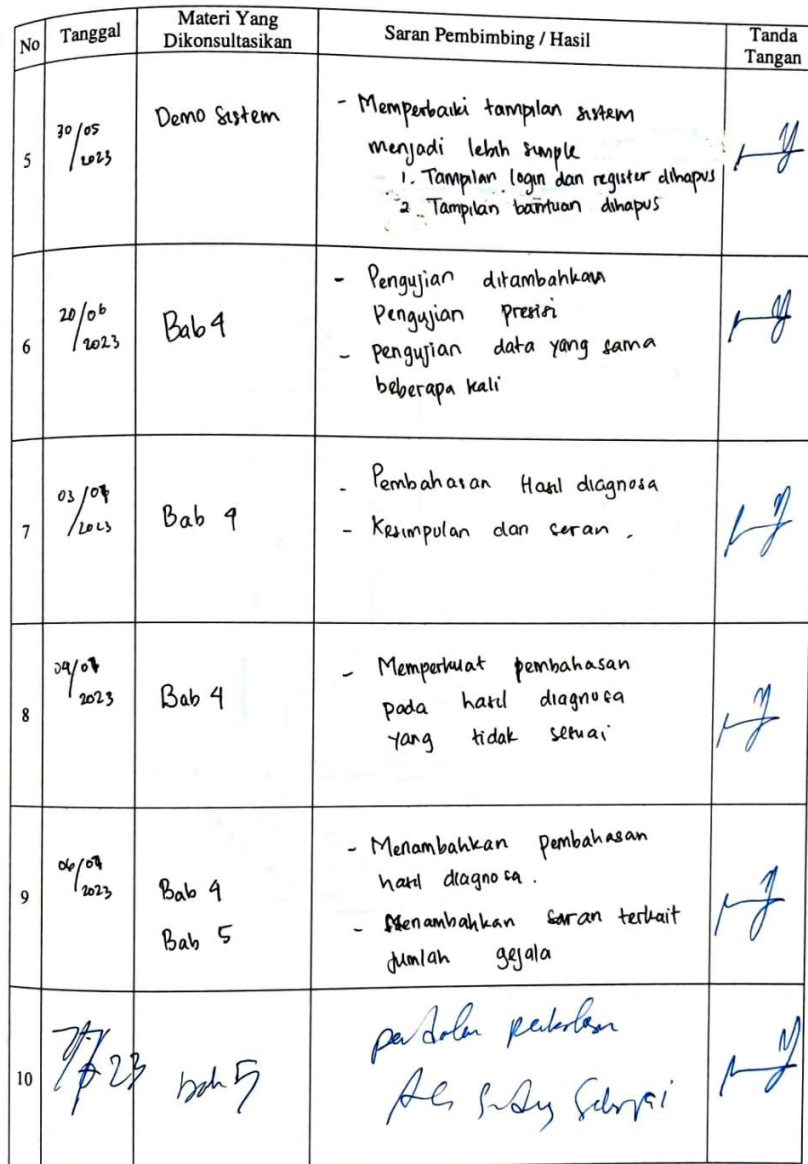 No Tanggal Materi Yang Dikonsultasikan Saran Pembimbing / Hasil Tanda Tangan
5 30/05 2023 Demo Sistem - Memperbaiki tampilan sistem
menjadi lebih simple
1. Tampilan login dan register dihapus
2. Tampilan bantuan dihapus
6 20/06 2023 Bab 4 - Pengujian ditambahkan
Pengujian presisi
- pengujian data yang sama
beberapa kali
7 03/07 2023 Bab 4 - Pembahasan Hasil diagnosa
- Kesimpulan dan saran.
8 04/07 2023 Bab 4 - Memperkuat pembahasan
pada hasil diagnosa
yang tidak sesuai
9 06/07 2023 Bab 4 - Menambahkan pembahasan
hasil diagnosa.
Bab 5 - Menambahkan saran terkait
jumlah gejala
10 23 bab 5